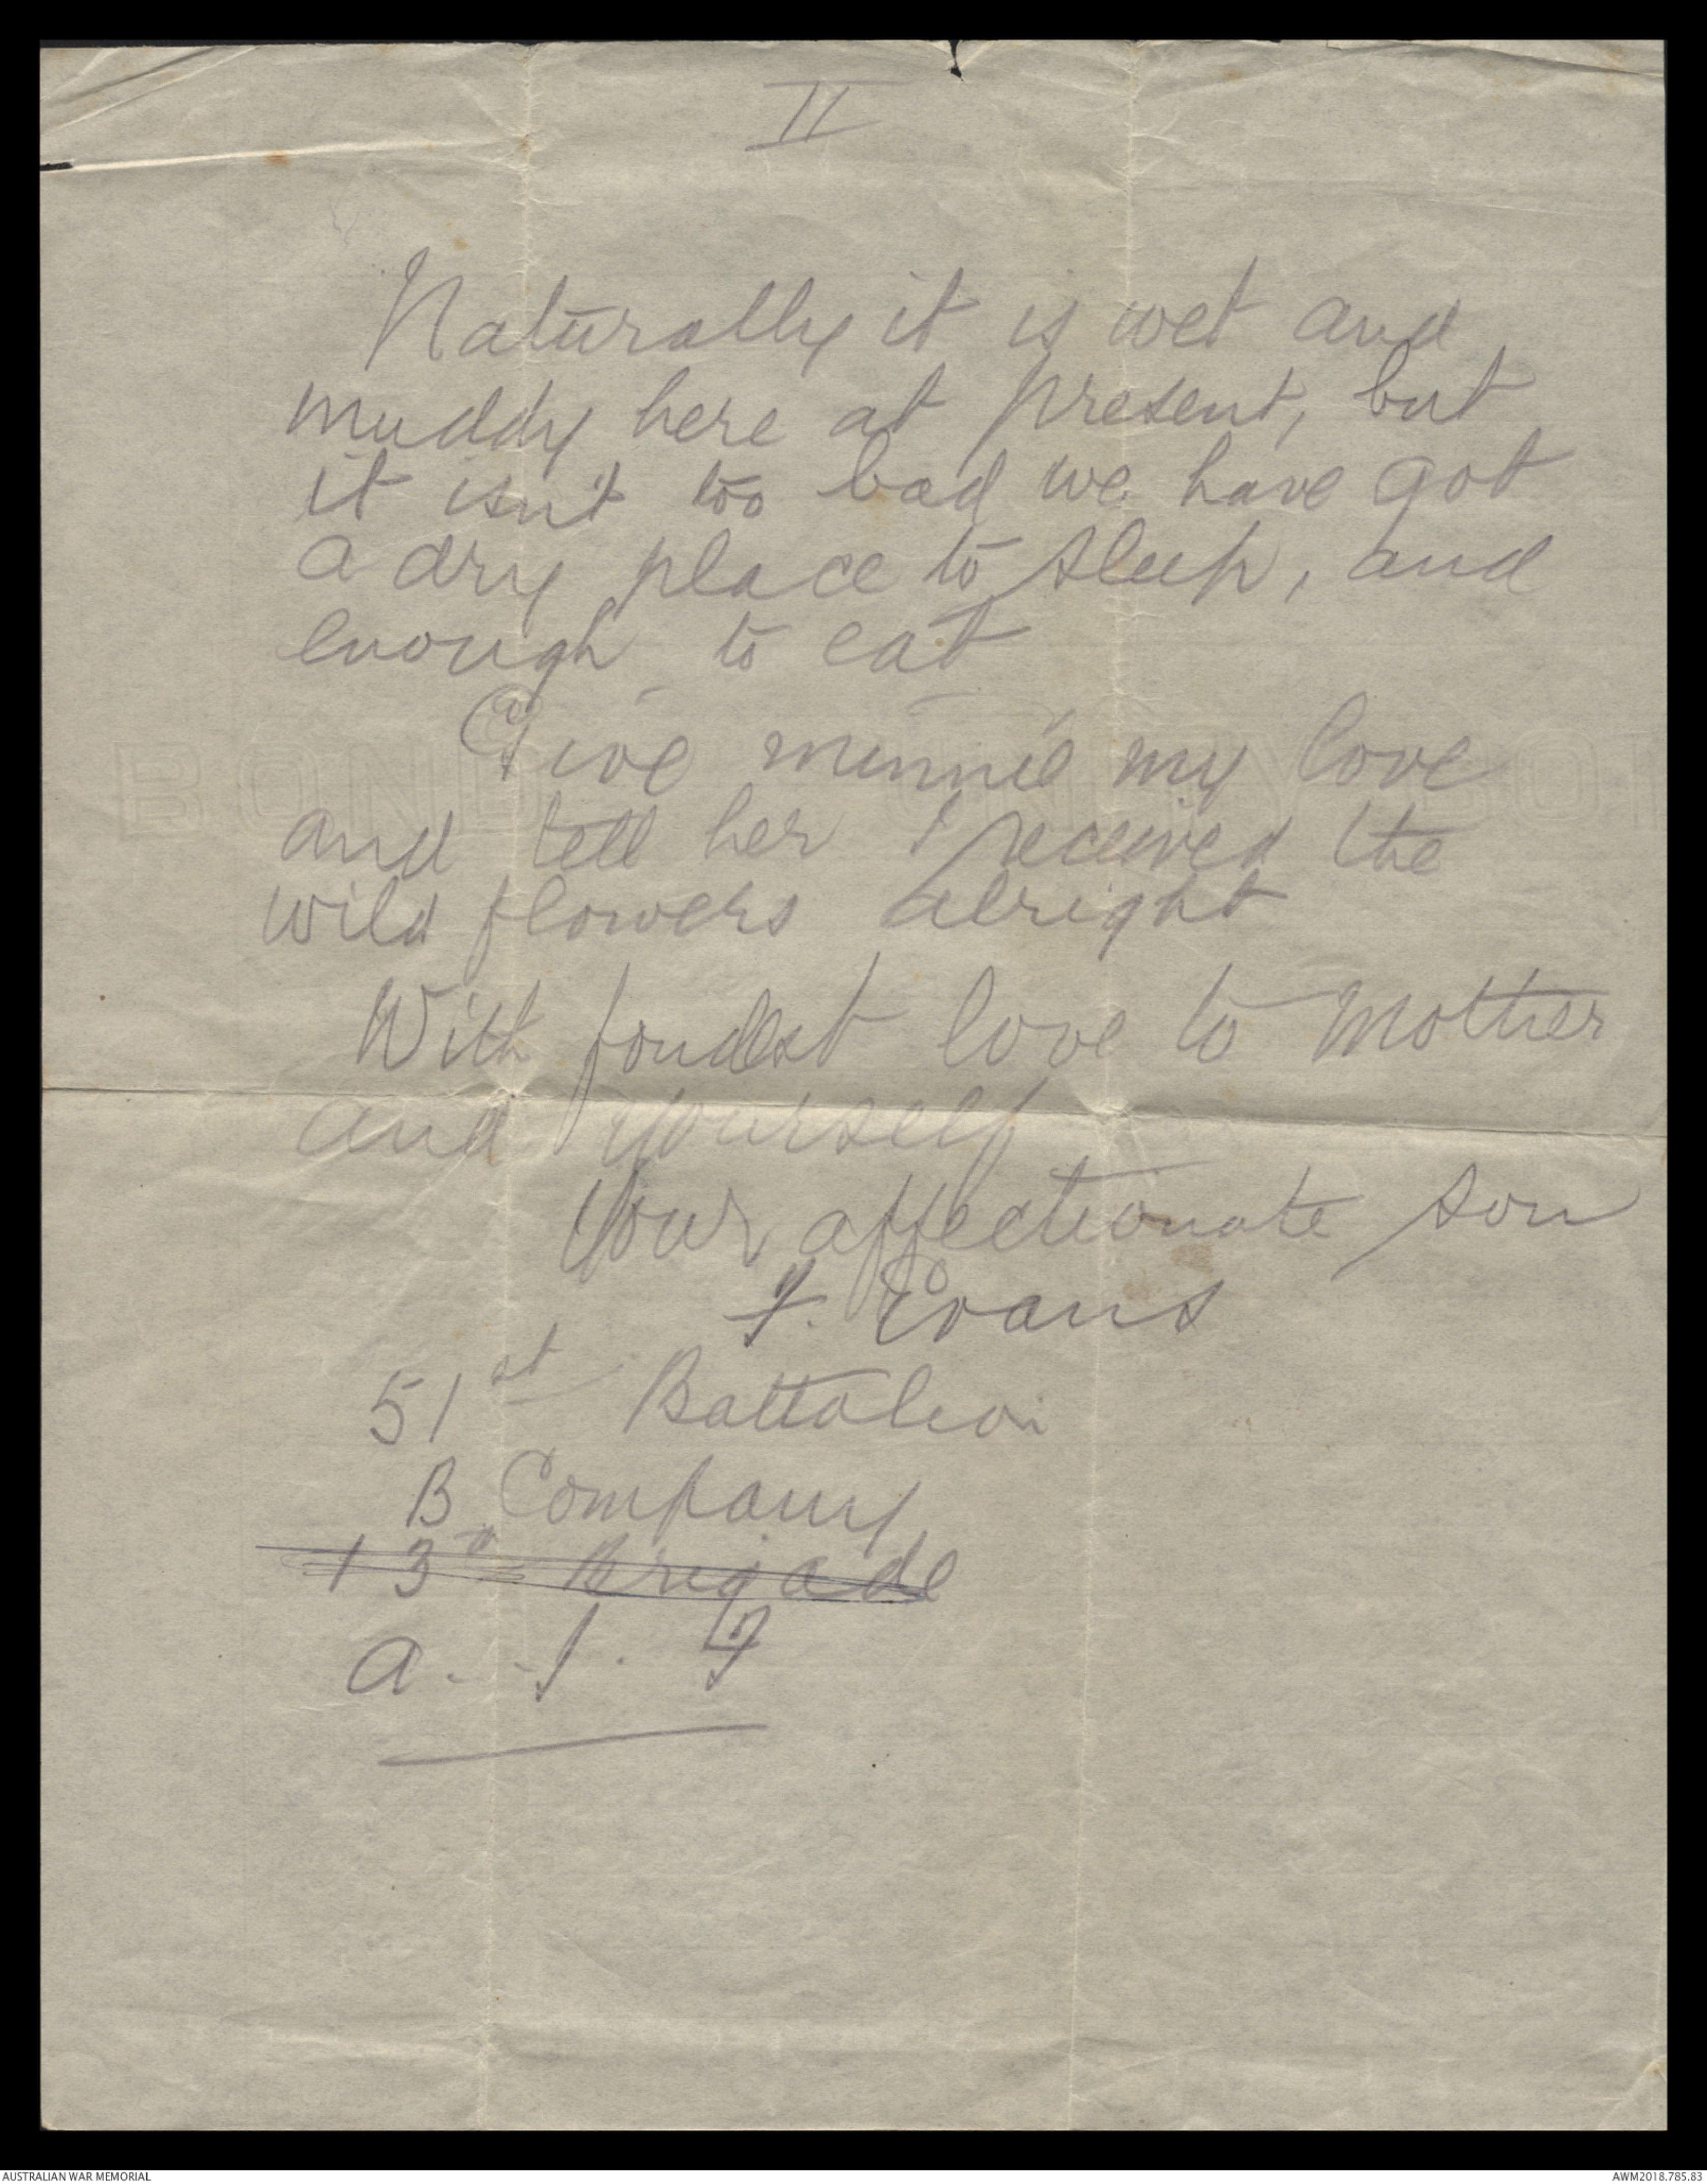 II
Naturally it is wet and
muddy here at present, but
it isn't too bad we have got
a dry place to sleep, and
enough to eat
Give minnie my love
and tell her I received the
wild flowers alright
With fondest love to Mother
and yourself
Your affectionate son
F. Evans
51st Battalion
B Company
13th Brigade
A. I. F
BOND
AUSTRALIAN WAR MEMORIAL
AWM2018.785.83